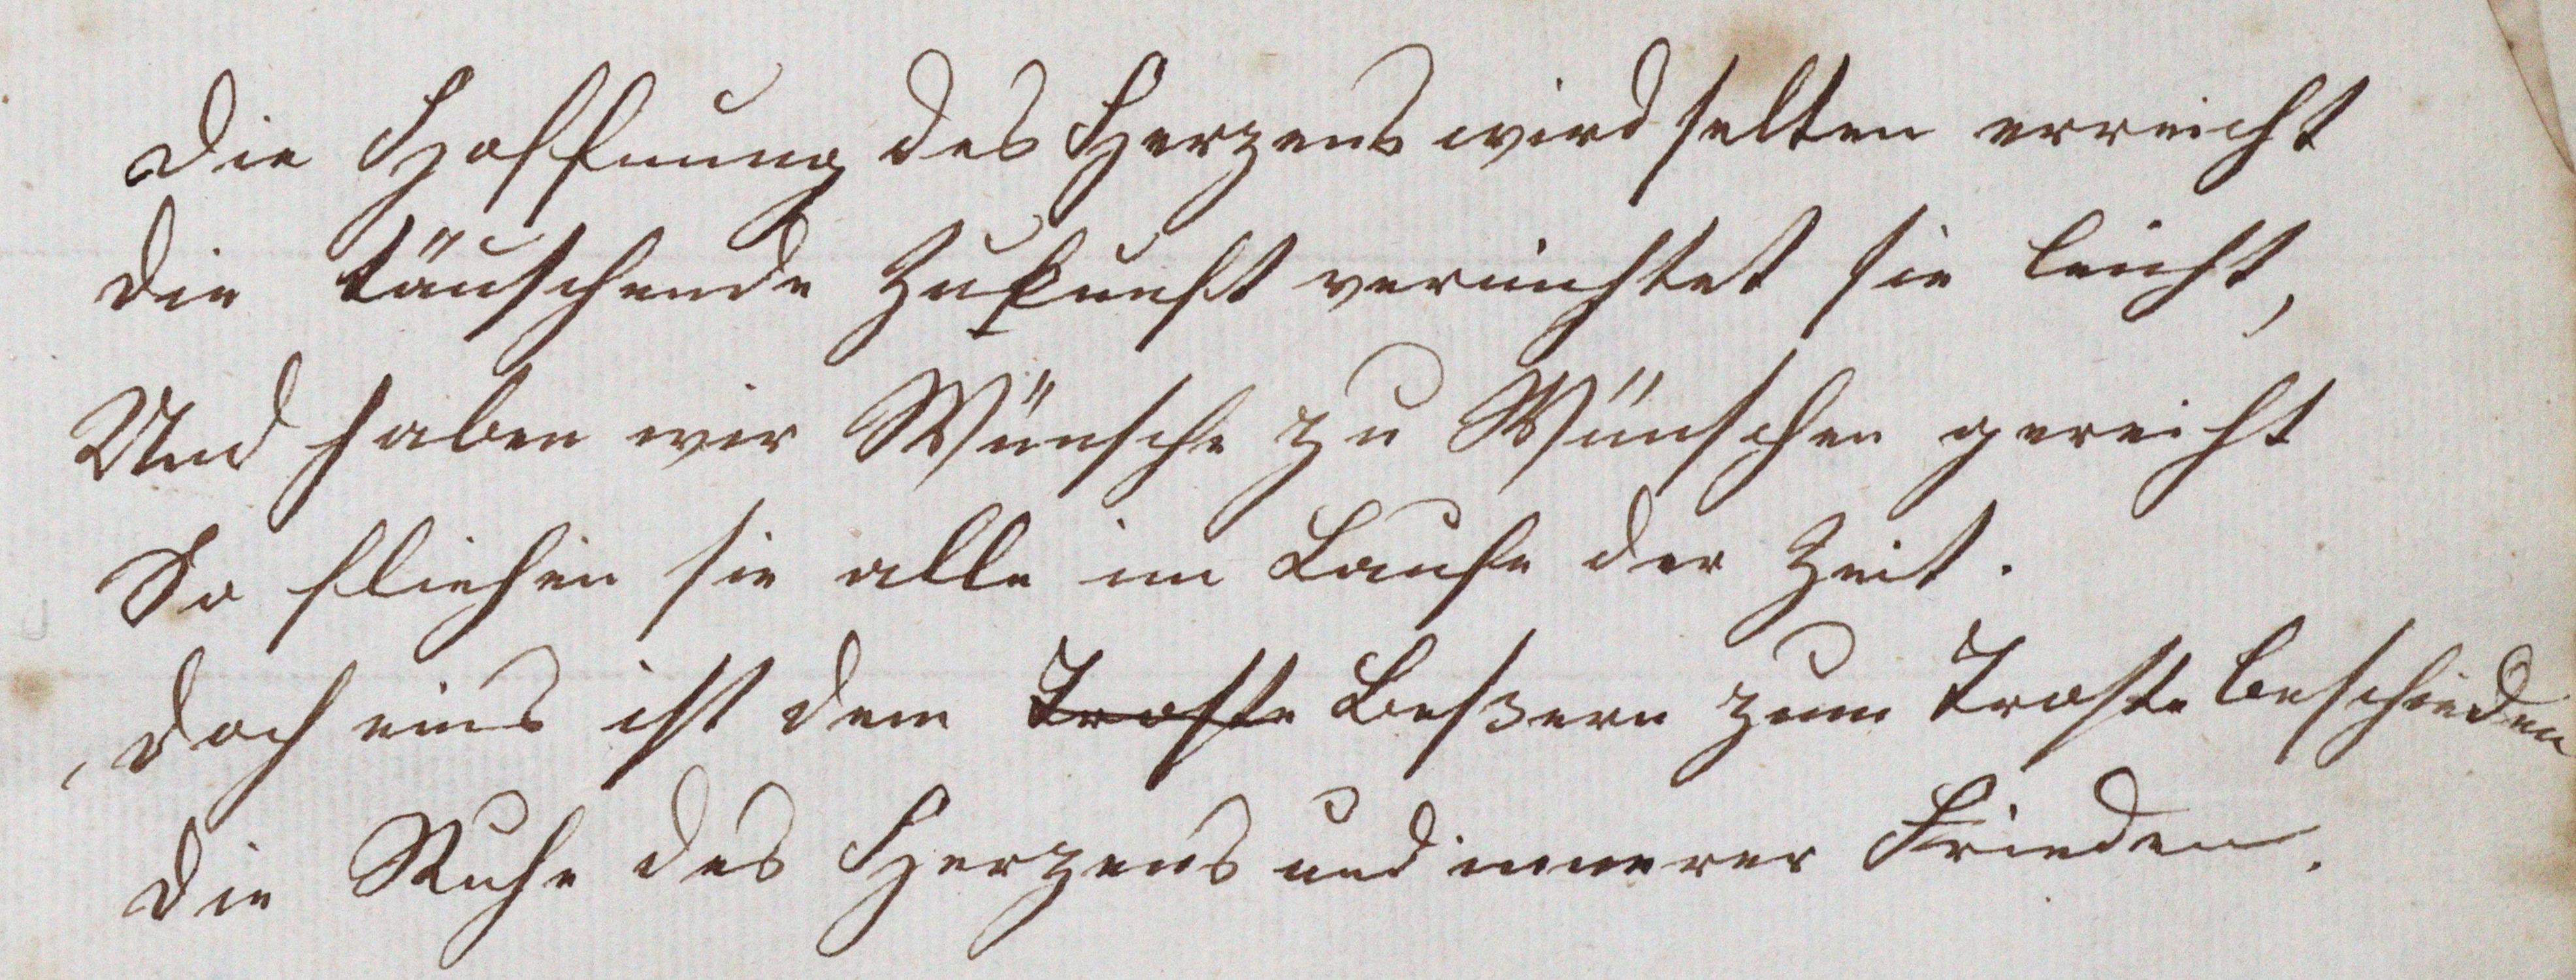 Die Hoffnung des Herzens wird selten erreicht
die täuschende Zukunft vernichtet sie leicht,
Und haben wir Wünsche zu Wünschen gereiht
So fliehen sie alle im Laufe der Zeit.
Doch eins ist dem Troste Beßern zum Troste beschieden
die Ruhe des Herzens und innerer Frieden.